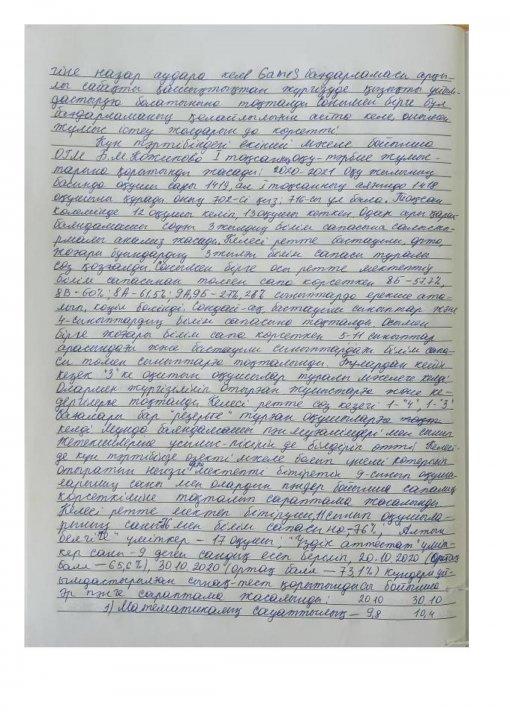 гіне назар аудара келе Games бағдарламасы арқы-
лы сабақты қашықтықтан жүргізуде қызықты ұйым-
дастыруға болатынына тоқталды сонымен бірге бұл
бағдарламаның қолайлылығын айта келе онымен
жұмыс істеу жолдарын да көрсетті.
Күн тәртібіндегі екінші мәселе бойынша
ОІМ Б.М. I тоқсан оқу-тәрбие жұмыс-
тарына қорытынды жасады: 2020-2021 оқу жылының
басында оқушы саны 1419, ал I тоқсанның аяғында 1418
оқушыны құрады оның 702-сі қыз, 716-сы ұл бала. Тоқсан
көлемінде 12 оқушы келіп, 13 оқушы кеткен. Одан әрі
баяндамашы соңғы 3 жылдың білім сапасына салысты-
рмалы анализ жасады. Келесі ретте бастауыш, орта,
жоғары буындардың 3 жылғы білім сапасы туралы
сөз қозғалды. Сонымен бірге осы ретте мектептің
білім сапасынан төмен сапа көрсеткен 8Б-57,7%,
8В-60%; 8А-61,5%; 9А,9Б-27%, 28% сыныптарға ерекше ата-
лып, көңіл бөлінді. Сондай-ақ бастауыш сыныптар және
4-сыныптардың білім сапасына тоқталды. Осымен
бірге жоғары білім сапа көрсеткен 5-11 сыныптар
арасындағы және бастауыш сыныптардағы білім сапа-
сы төмен сыныптарға тоқталынды. Бұлардан кейін
кезек "3"ке оқитын оқушылар туралы мәселеге келді
олармен жүргізілініп отырған жұмыстарға және ке-
дергілерге тоқталды. Келесі ретте сөз кезегі 1-"4", 1-"3"
бағалары бар "резервте" тұрған оқушыларға
келді. Мұнда баяндамашы пән мұғалімдері мен сынып
жетекшілеріне ұсыныс-пікірін де білдіріп өтті. Келе-
де күн тәртібінде өзекті мәселе болып үнемі көтеріліп
отыратын негізгі орта мектепті бітіретін 9-сынып оқушы-
ларының саны мен олардың пәндер бойынша сапалық
көрсеткішіне тоқталып сараптама жасалынды.
Келесі ретте мектеп бітіруші 11 сынып оқушыла-
рының саны мен білім сапасы -76%, "Алтын
белгіге" үміткер - 17 оқушы. "Үздік аттестат" үміт-
кер саны - 9 деген сандық есеп беріліп, 20.10.2020 (Орташа
балл - 65,0%), 30.10.2020 (орташа балл - 73,1%) күндері ұй-
ымдастырылған сынақ-тест қорытындысы бойынша
әр пәнге сараптама жасалынды: 20.10 30.10
1) Математикалық сауаттылық - 9,8 10,4